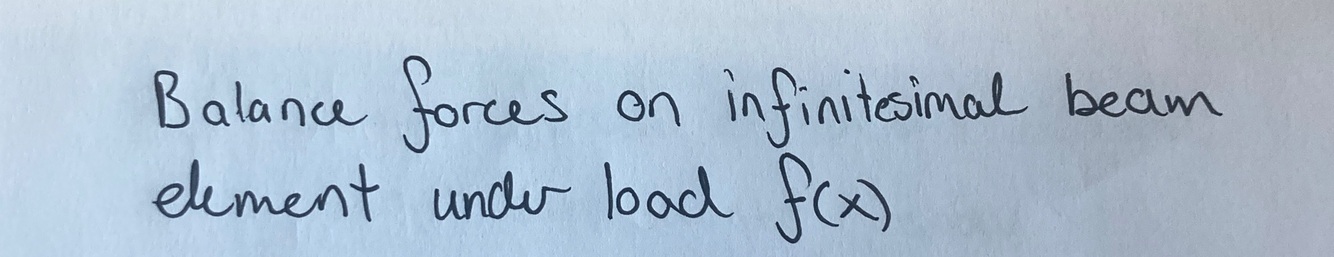 Balance forces on infinitesimal beam
element under load f(x)